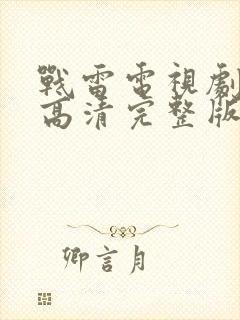 戰雷電視劇
高清完整版
卿言月